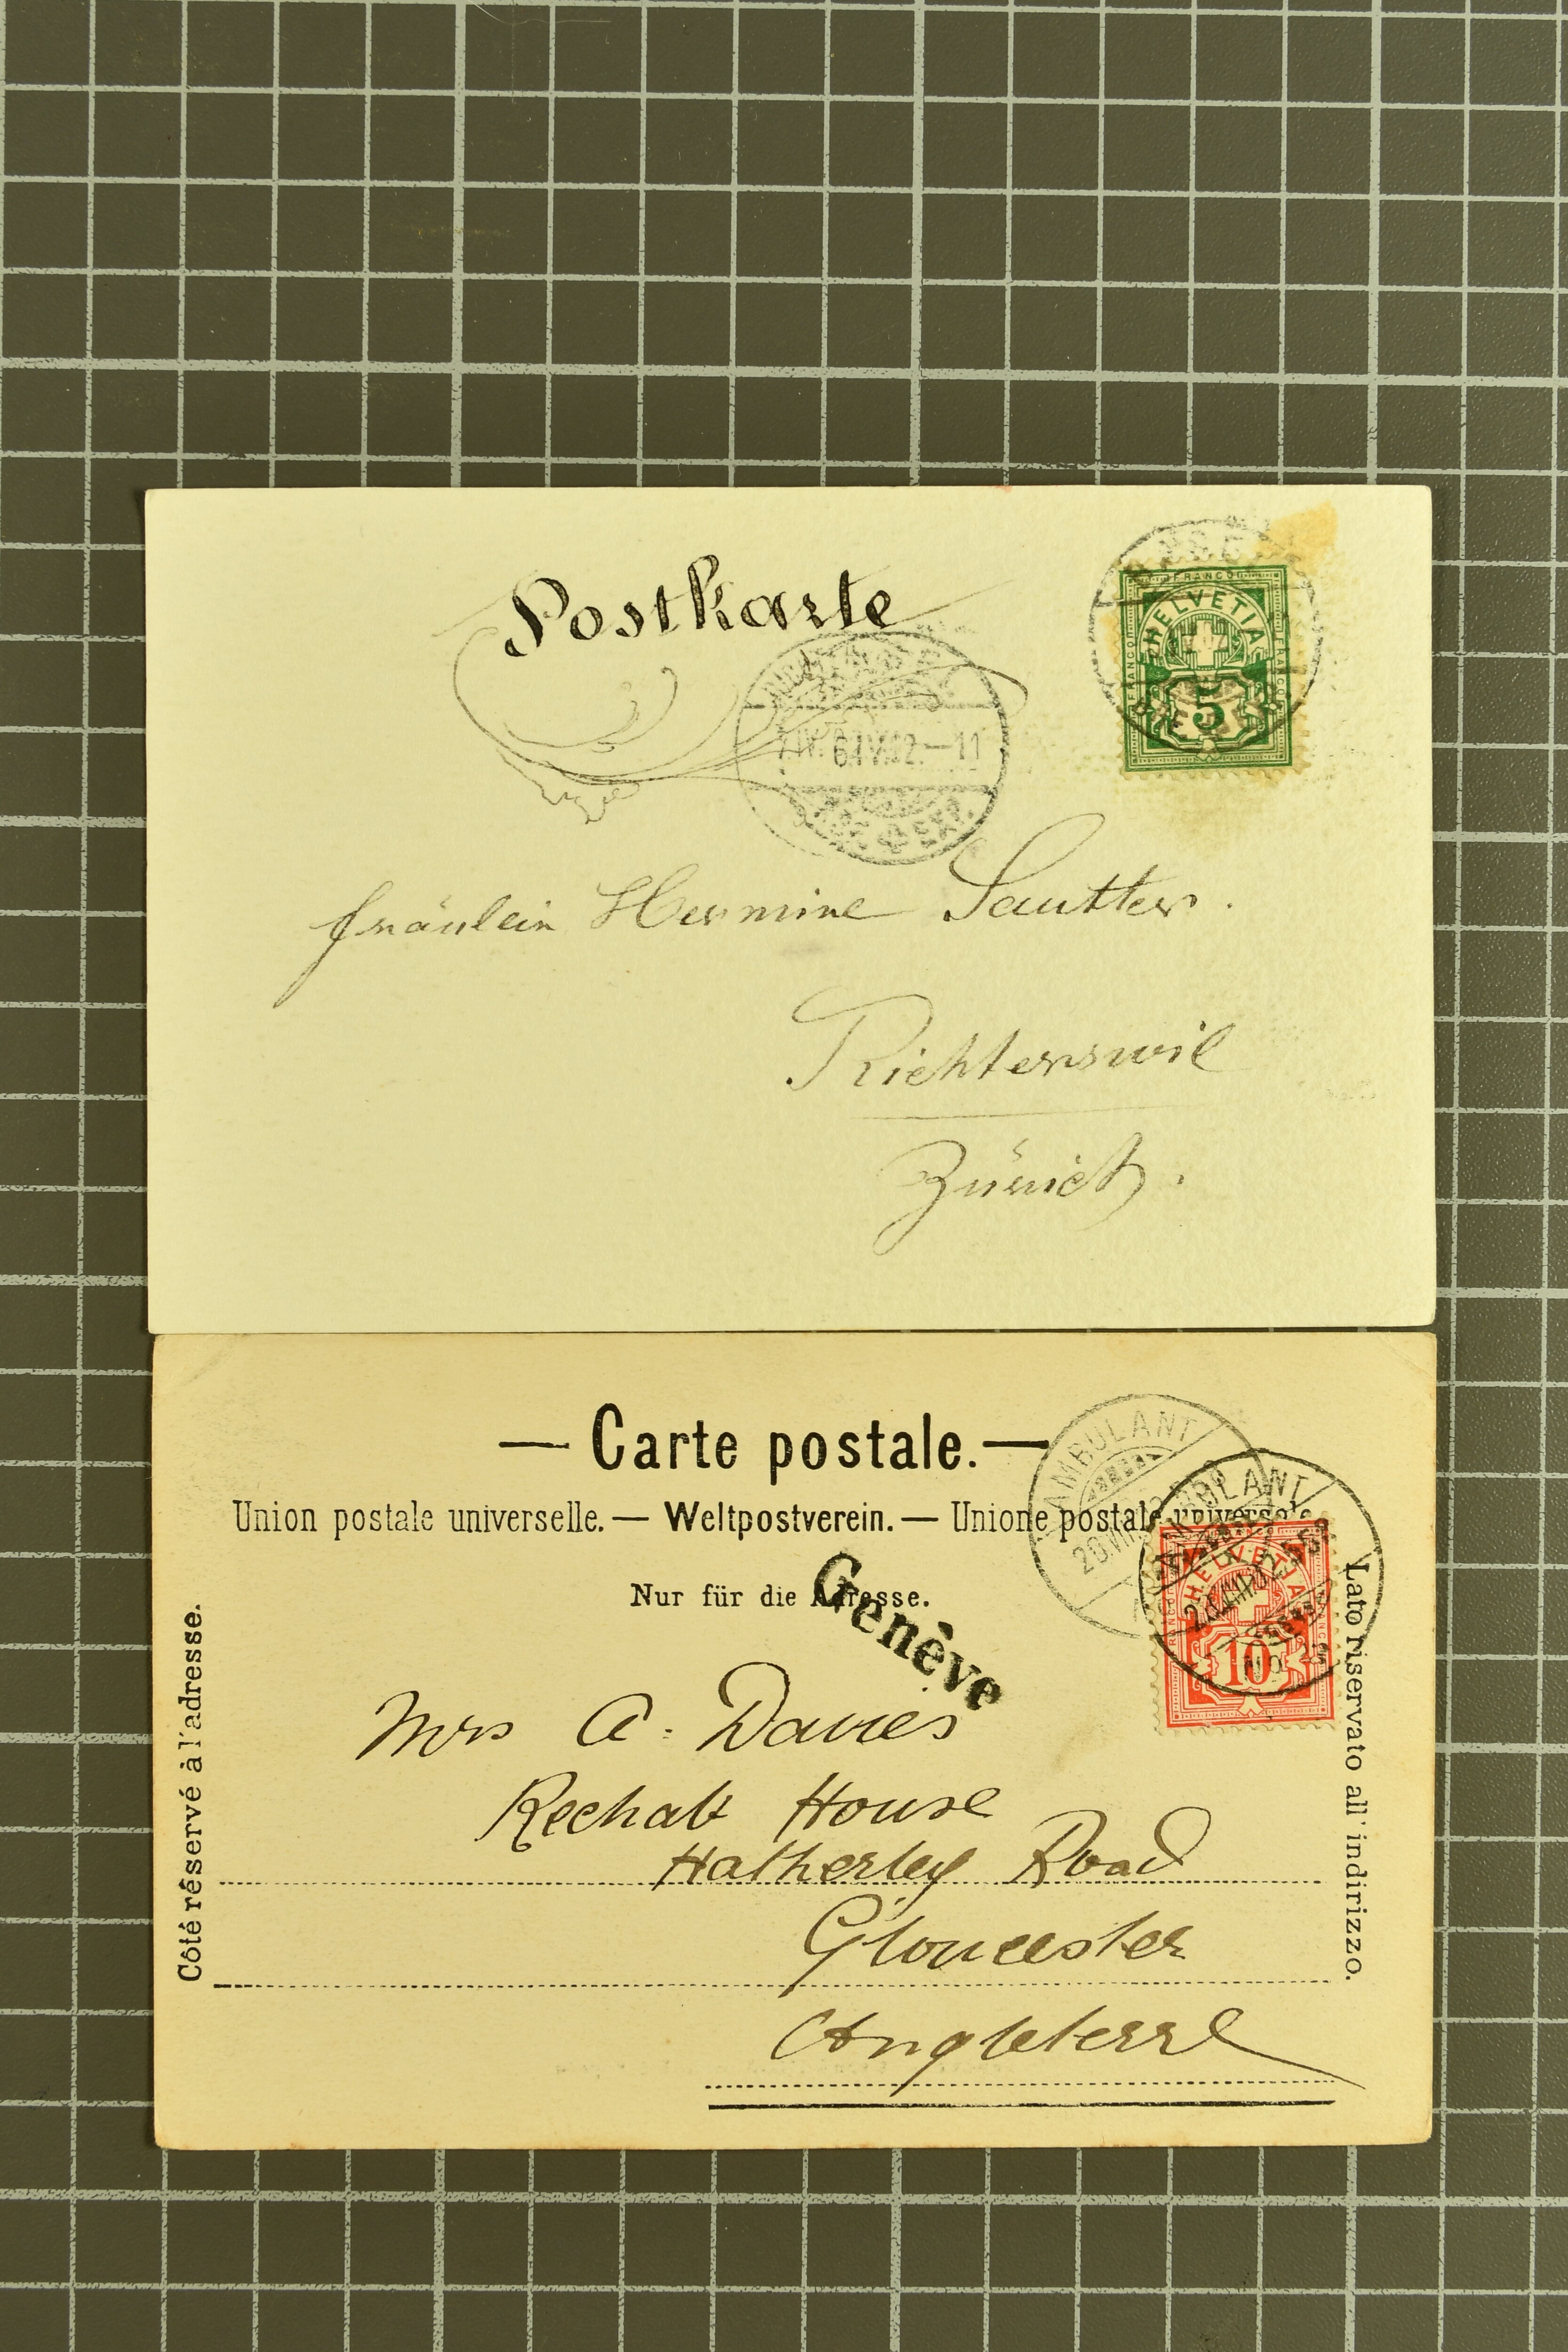 Postkarte
FRANCO
HELVETIA
FRANCO
FRANCO
5
Fräulein Hermine Sautter.
Richterswil
Zürich.
— Carte postale. —
Union postale universelle. — Weltpostverein. — Unione postale universale.
Nur für die Adresse.
Genève
AMBULANT
AMBULANT
HELVETIA
10
Côté réservé à l'adresse.
Lato riservato all' indirizzo.
Mrs A. Davies
Rechab House
Hatherley Road
Gloucester
Angleterre